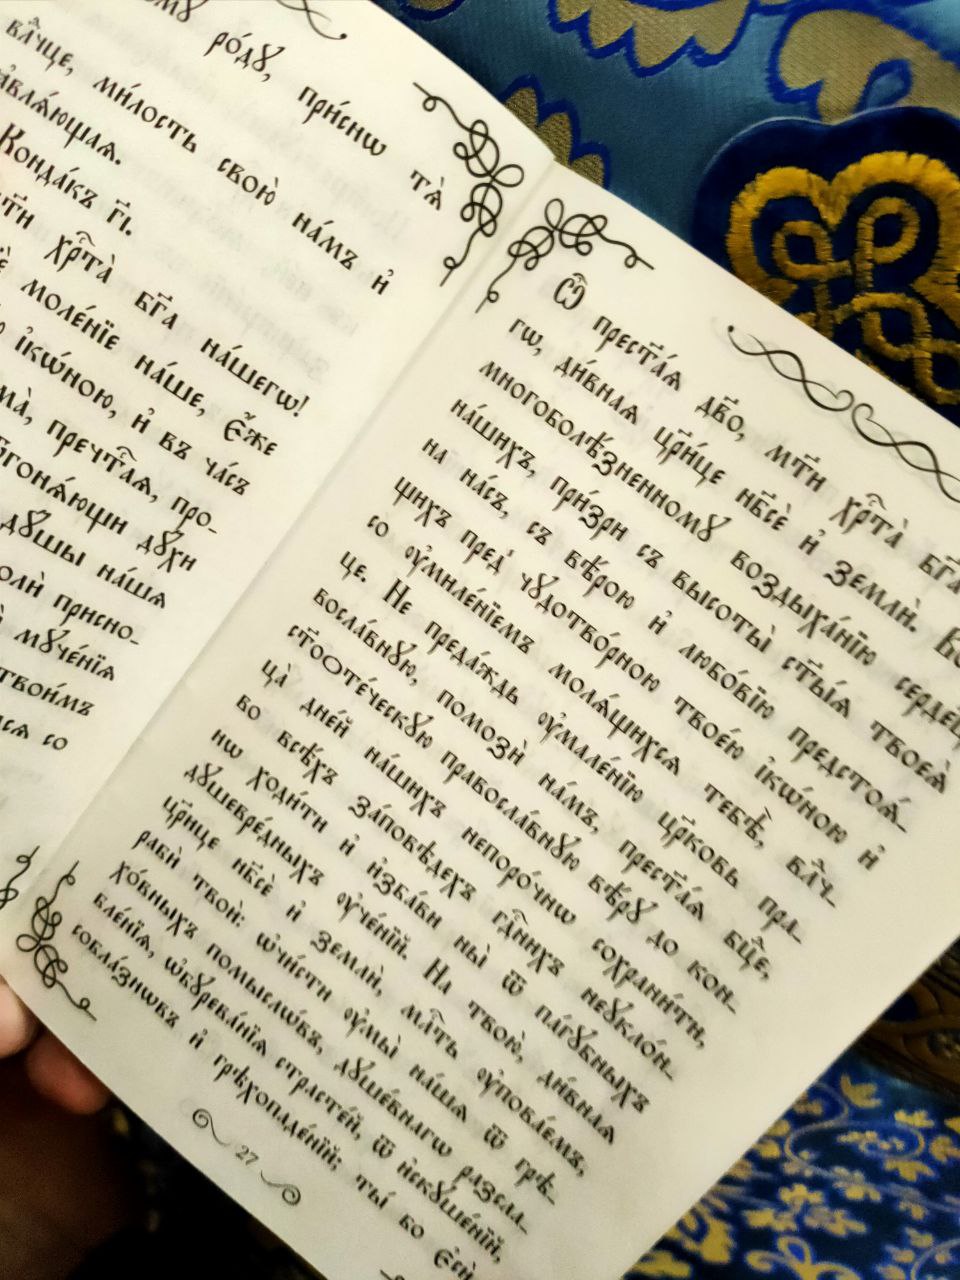 ро́дꙋ, при́снѡ
влⷣчце, ми́лость свою̀ на́мъ и҆
ѧ҆̀
Конда́къ г҃і.
хрⷭ҇та̀ бг҃а на́шегѡ!
моле́нїе на́ше, є҆́же
і҆кѡ́ною, и҆ въ ча́съ
пречⷭ҇таѧ, про-
дꙋ́хи
дꙋ́шы на́шѧ
присно-
мꙋче́нїѧ
твои́мъ
со
Ѽ прест҃а́ѧ дв҃о, мт҃и хрⷭ҇та̀ бг҃а
гѡ, ди́внаѧ цр҃и́це нб҃сѐ и҆ землѝ.
многоболѣ́зненномꙋ воздыха́нїю
на́шихъ, при́зри съ высоты̀ ст҃ы́ѧ твоеѧ̀
на на́съ, съ вѣ́рою и҆ любо́вїю предстоѧ́-
щихъ пред̾ чꙋдотво́рною твое́ю і҆кѡ́ною и҆
со ᲂу҆миле́нїемъ молѧ́щихсѧ тебѣ̀, влⷣч-
це. Не преда́ждь ᲂу҆мале́нїю цр҃ковь пра-
восла́внꙋю, помозѝ на́мъ, прест҃а́ѧ бцⷣе,
ст҃оѻте́ческꙋю правосла́внꙋю вѣ́рꙋ до кон-
ца̀ дне́й на́шихъ непоро́чнѡ сохрани́ти,
во всѣ́хъ за́повѣдехъ гдⷭ҇нихъ неꙋкло́н-
нѡ ходи́ти и҆ и҆зба́ви ны̀ ѿ па́гꙋбныхъ
дꙋшевре́дныхъ ᲂу҆че́нїй. На твою̀, ди́внаѧ
цр҃и́це нб҃сѐ и҆ землѝ, мл҃ть ᲂу҆пова́емъ,
рабѝ твоѝ: ѡ҆чи́сти ᲂу҆мы̀ на́шѧ ѿ грѣ-
хо́вныхъ помыслѡ́въ, дꙋше́внагѡ разсла-
бле́нїѧ, ѡ҆бꙋрева́нїѧ страсте́й, ѿ и҆скꙋше́нїй,
собла́знѡвъ и҆ грѣхопаде́нїй: ты́ бо є҆сѝ
27